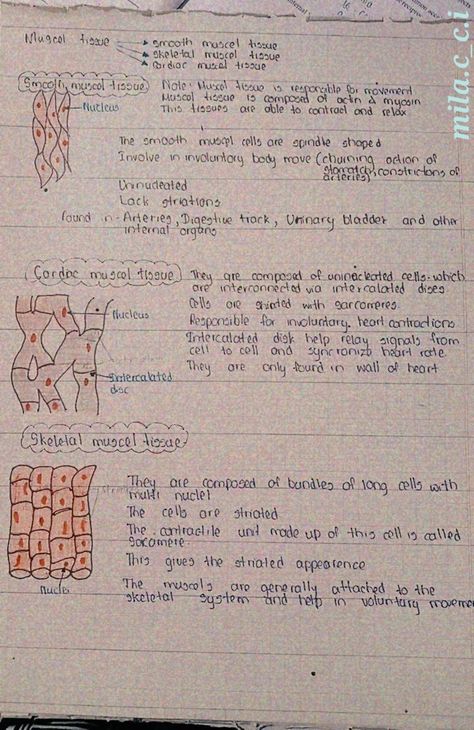 mila.c.ci
Muscol tissue → smooth muscel tissue
→ skeletal muscel tissue
→ Cardiac muscel tissue
Smooth muscol tissue
Note: Muscel tissue is responsible for movement
Muscel tissue is composed of actin & myosin
This tissues are able to contract and relax
Nucleus
The smooth muscel cells are spindle shaped
Involve in involuntary body move (churning action of
stomatch, constrictons of
arteries)
Uninucleated
Lack striations
found in - Arteries, Digestive track, Urinary bladder and other
internal organs
Cardiac muscol tissue
They are composed of uninucleated cells which
are interconnected via intercalated discs
Cells are striated with sarcomeres
Nucleus
Responsible for involuntary heart contractions
Intercalated disk help relay signals from
cell to cell and syncroniz heart rate
They are only found in wall of heart
Intercalated
disc
Skeletal muscel tissue
They are composed of bundles of long cells with
multi nuclei
The cells are striated
The contractile unit made up of this cell is called
sarcomere
This gives the striated appearence
Nuclei
The muscols are generally attached to the
skeletal system and help in voluntary movemen